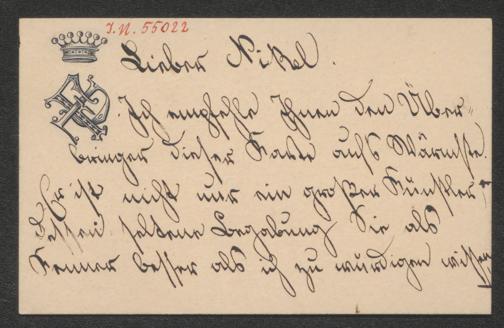 I.N. 55022
Lieber Nikel.
Ich empfehle Ihnen den Über-
bringer dieser Karte aufs Wärmste.
Er ist nicht nur ein großer Künstler,
dessen seltene Begabung Sie als
Kenner besser als ich zu würdigen wissen